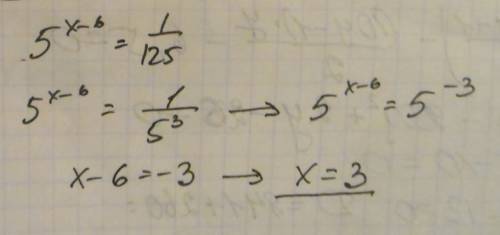 5^{x-6} = \frac{1}{125}
5^{x-6} = \frac{1}{5^3} → 5^{x-6} = 5^{-3}
x-6=-3 → x=3